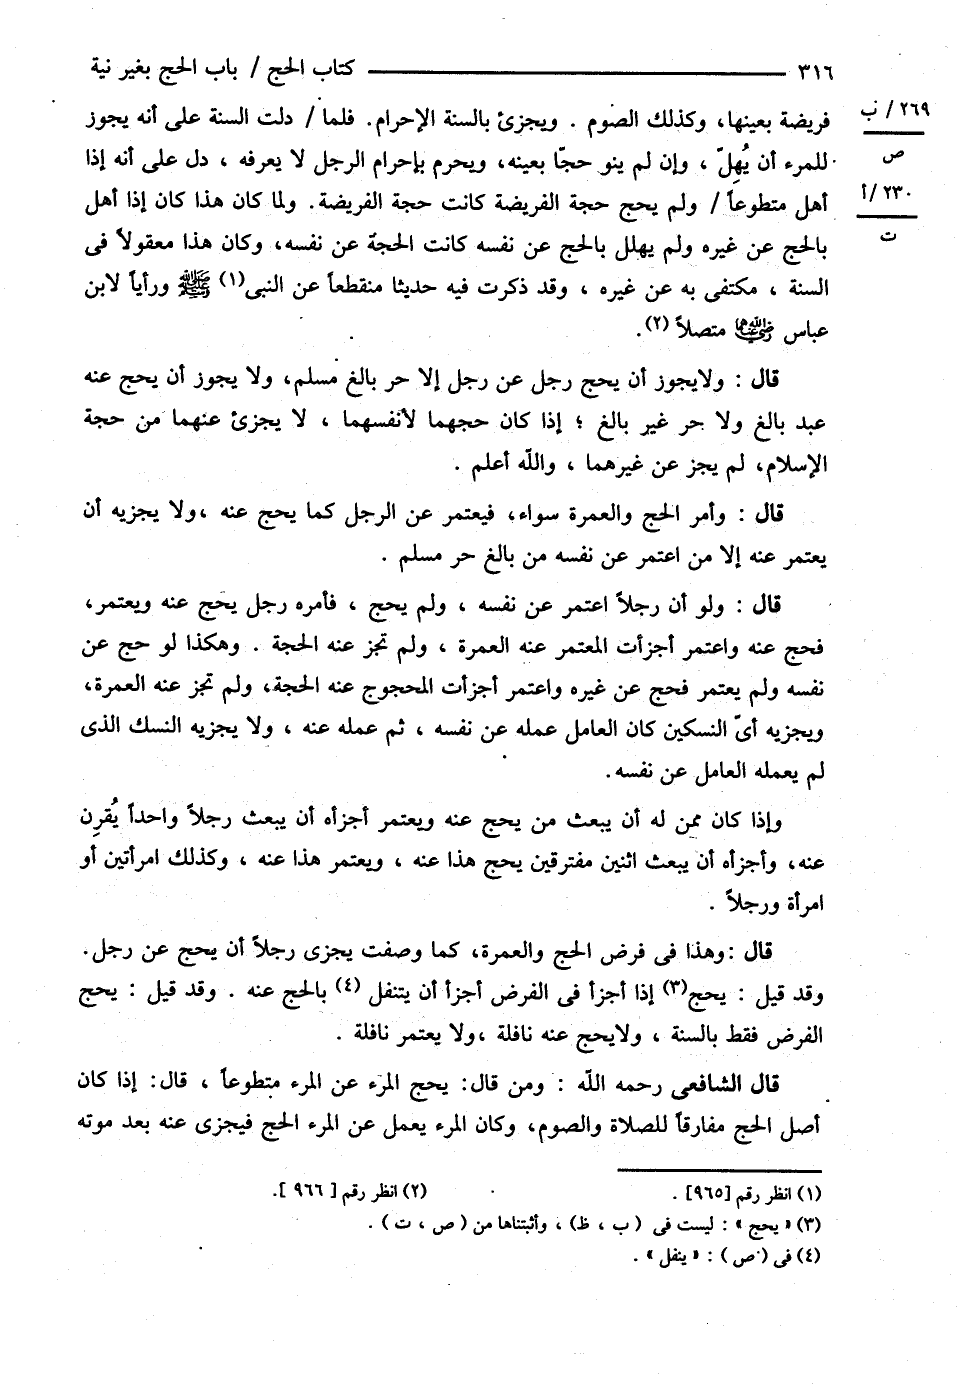 ٣١٦ ــــــــــــــــ كتاب الحج / باب الحج بغير نية
٢٦٩/ ب
ص
٢٣٠/أ
ت
فريضة بعينها، وكذلك الصوم . ويجزئ بالسنة الإحرام. فلما / دلت السنة على أنه يجوز
للمرء أن يُهِلّ ، وإن لم ينو حجّا بعينه، ويحرم بإحرام الرجل لا يعرفه ، دل على أنه إذا
أهل متطوعاً / ولم يحج حجة الفريضة كانت حجة الفريضة. ولما كان هذا كان إذا أهل
بالحج عن غيره ولم يهلل بالحج عن نفسه كانت الحجة عن نفسه، وكان هذا معقولاً فى
السنة ، مكتفى به عن غيره ، وقد ذكرت فيه حديثا منقطعاً عن النبى(١) ﷺ ورأياً لابن
عباس رضي الله عنهما متصلاً (٢).
قال : ولايجوز أن يحج رجل عن رجل إلا حر بالغ مسلم، ولا يجوز أن يحج عنه
عبد بالغ ولا حر غير بالغ ؛ إذا كان حجهما لأنفسهما ، لا يجزئ عنهما من حجة
الإسلام، لم يجز عن غيرهما ، والله أعلم .
قال : وأمر الحج والعمرة سواء، فيعتمر عن الرجل كما يحج عنه ،ولا يجزيه أن
يعتمر عنه إلا من اعتمر عن نفسه من بالغ حر مسلم .
قال : ولو أن رجلاً اعتمر عن نفسه ، ولم يحج ، فأمره رجل يحج عنه ويعتمر،
فحج عنه واعتمر أجزأت المعتمر عنه العمرة ، ولم تجز عنه الحجة . وهكذا لو حج عن
نفسه ولم يعتمر فحج عن غيره واعتمر أجزأت المحجوج عنه الحجة، ولم تجز عنه العمرة،
ويجزيه أىّ النسكين كان العامل عمله عن نفسه ، ثم عمله عنه ، ولا يجزيه النسك الذى
لم يعمله العامل عن نفسه.
وإذا كان ممن له أن يبعث من يحج عنه ويعتمر أجزأه أن يبعث رجلاً واحداً يُقرِن
عنه، وأجزأه أن يبعث اثنين مفترقين يحج هذا عنه ، ويعتمر هذا عنه ، وكذلك امرأتين أو
امرأة ورجلاً .
قال :وهذا فى فرض الحج والعمرة، كما وصفت يجزى رجلاً أن يحج عن رجل.
وقد قيل : يحج(٣) إذا أجزأ فى الفرض أجزأ أن يتنفل (٤) بالحج عنه . وقد قيل : يحج
الفرض فقط بالسنة ، ولايحج عنه نافلة ،ولا يعتمر نافلة .
قال الشافعى رحمه الله : ومن قال: يحج المرء عن المرء متطوعاً ، قال: إذا كان
أصل الحج مفارقاً للصلاة والصوم، وكان المرء يعمل عن المرء الحج فيجزى عنه بعد موته
(١) انظر رقم [٩٦٥] . (٢) انظر رقم [ ٩٦٦ ].
(٣) « يحج » : ليست فى ( ب ، ظ) ، وأثبتناها من ( ص ، ت ) .
(٤) فى ( ص ) : « ينفل » .